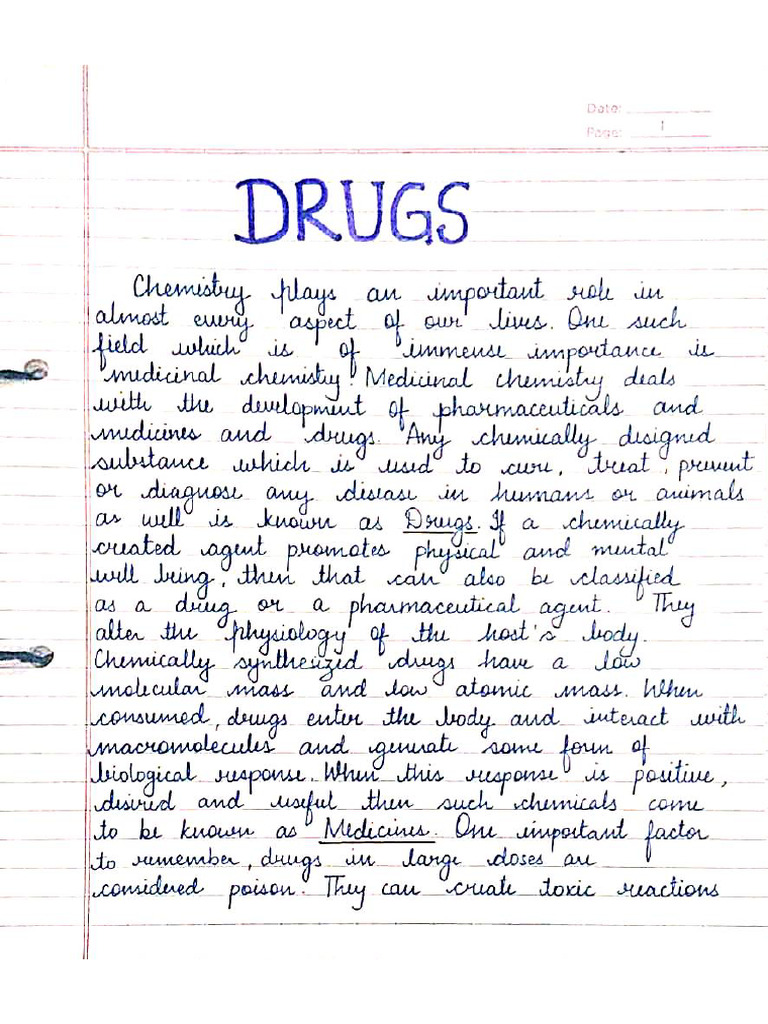 Date:
Page: 1
DRUGS
Chemistry plays an important role in
almost every aspect of our lives. One such
field which is of immense importance is
medicinal chemistry. Medicinal chemistry deals
with the development of pharmaceuticals and
medicines and drugs. Any chemically designed
substance which is used to cure, treat, prevent
or diagnose any disease in humans or animals
as well is known as Drugs. If a chemically
created agent promotes physical and mental
well being, then that can also be classified
as a drug or a pharmaceutical agent. They
alter the physiology of the host's body.
Chemically synthesized drugs have a low
molecular mass and low atomic mass. When
consumed, drugs enter the body and interact with
macromolecules and generate some form of
biological response. When this response is positive,
desired and useful then such chemicals come
to be known as Medicines. One important factor
to remember, drugs in large doses are
considered poison. They can create toxic reactions